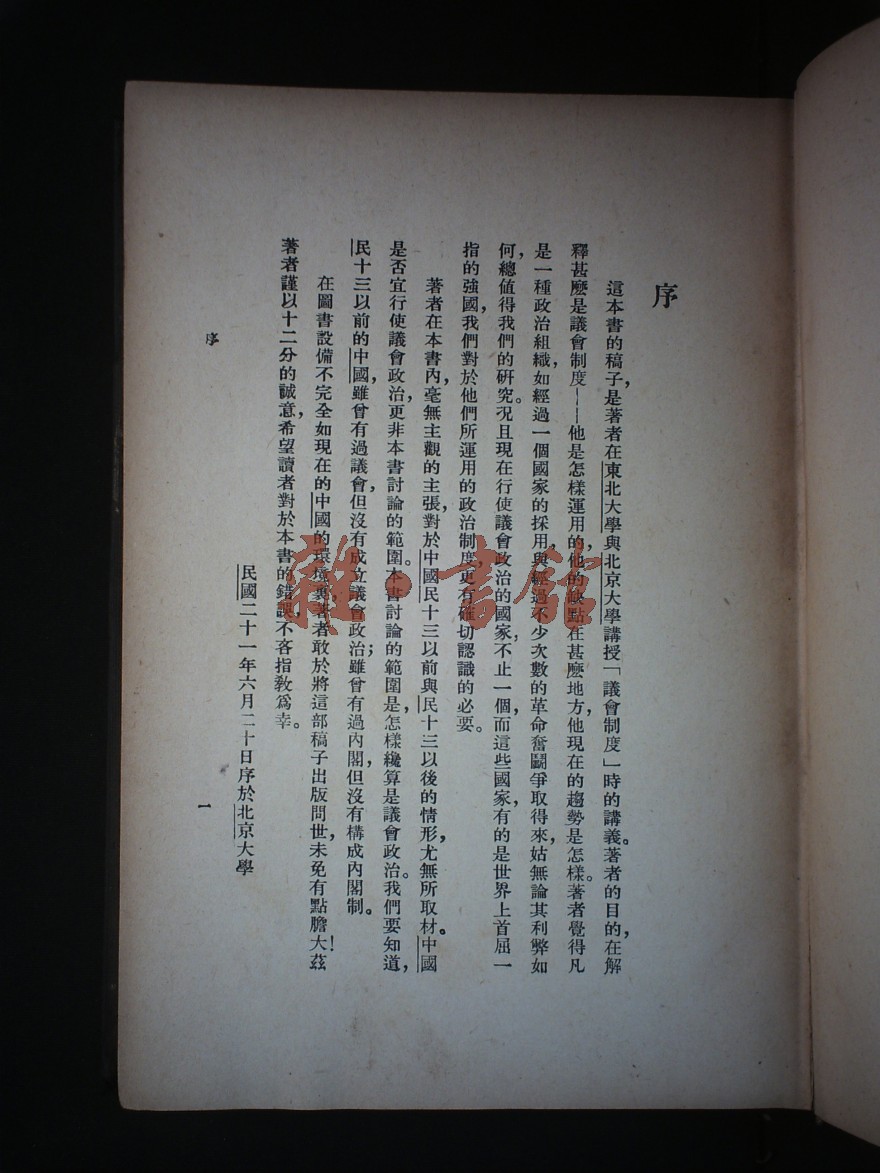 序
這本書的稿子，是著者在東北大學與北京大學講授「議會制度」一時的講義。著者的目的，在解
釋甚麽是議會制度——他是怎樣運用的，他的缺點在甚麽地方，他現在的趨勢是怎樣。著者覺得凡
是一種政治組織，如經過一個國家的採用，與經過不少次數的革命奮鬭爭取得來，姑無論其利弊如
何，總值得我們的研究。況且現在行使議會政治的國家，不止一個，而這些國家，有的是世界上首屈一
指的強國，我們對於他們所運用的政治制度，更有確切認識的必要。
著者在本書內，毫無主觀的主張，對於中國民十三以前與民十三以後的情形，尤無所取材。中國
是否宜行使議會政治，更非本書討論的範圍。本書討論的範圍，是怎樣纔算是議會政治。我們要知道，
民十三以前的中國，雖曾有過議會，但沒有成立議會政治；雖曾有過內閣，但沒有構成內閣制。
在圖書設備不完全如現在的中國的環境裏，著者敢於將這部稿子出版問世，未免有點膽大！茲
著者謹以十二分的誠意，希望讀者對於本書的錯誤，不吝指敎爲幸。
民國二十一年六月二十日序於北京大學
序
一
雜·書館